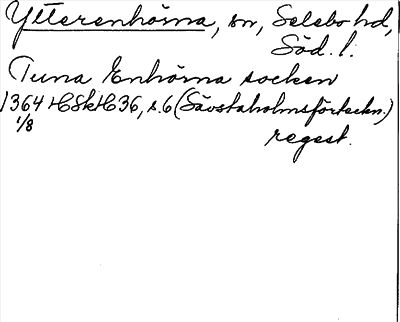 Ytterenhörna, sn, Selebo hd,
Söd. l.
Tuna Enhörna socken
1364 HSkH 36, s. 6 (Sävstaholmsförteckn.)
1/8
regest.